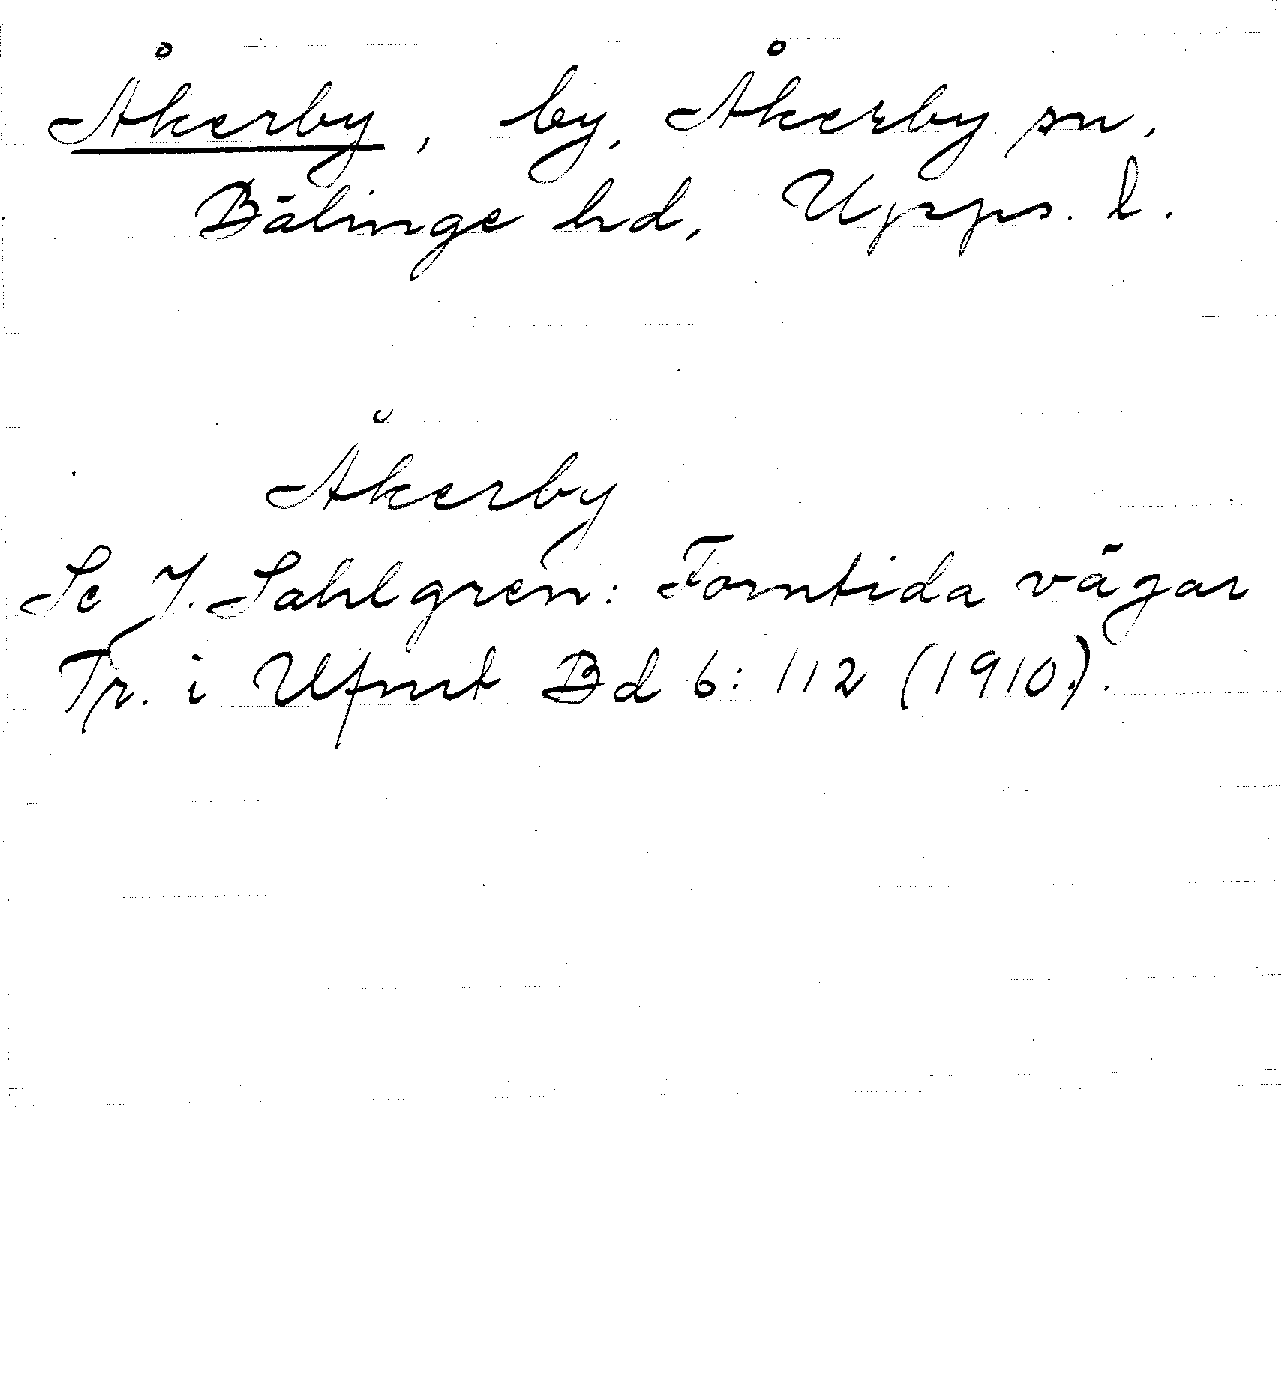 Åkerby, by, Åkerby sn,
Bälinge hd, Upps. l.
Åkerby
Se J. Sahlgren: Forntida vägar
Tr. i Ufmt Bd 6: 112 (1910).